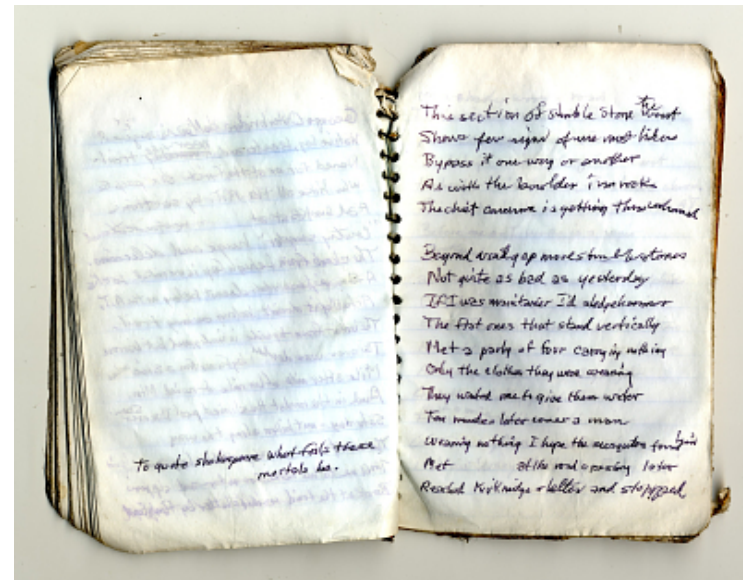 To quote shakespeare what fools these
mortals be.
This section of stumble stone the worst
Shows few signs of use most hikers
Bypass it one way or another
As with the boulder iron rocks
The chief concern is getting thru unharmed
Beyond wall gap more stumble stones
Not quite as bad as yesterday
If I was maintainer I'd sledgehammer
The flat ones that stand vertically
Met a party of four carrying nothing
Only the clothes they were wearing
They wanted me to give them water
Ten minutes later comes a man
Wearing nothing I hope the mosquitos found him
Met at the road crossing later
Reached Kirkridge shelter and stopped